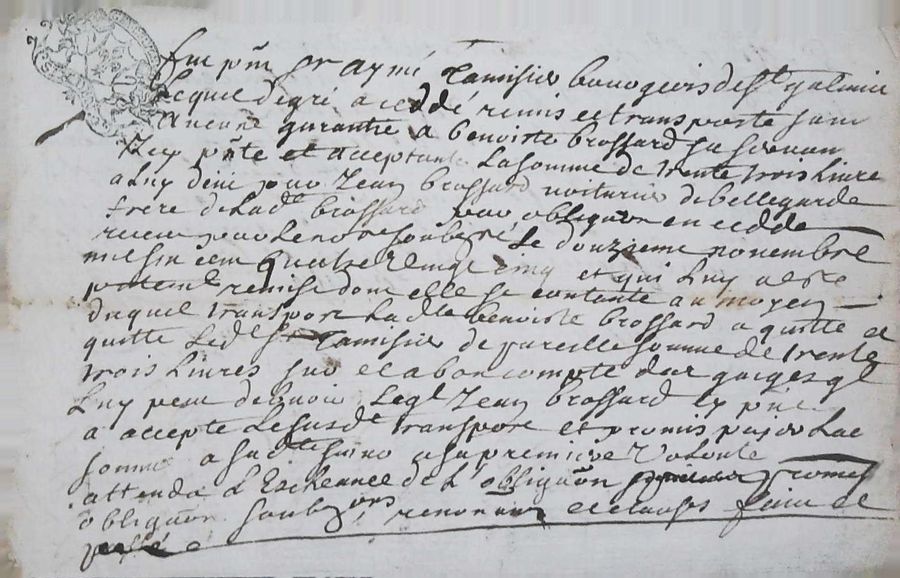 fut pnt Sr aymé Tamisier bourgeois de St galmier
Lequel de gré a ceddé remis et transporte sans
Aucune garantie a benoiste brossard sa servan
Icy pnte et acceptante La somme de trente trois Livre
a Luy deue par Jean brossard voiturier de bellegarde
frere de Lade brossard par obligaon en cedde
receue par Le nore soubzné Le douzieme novembre
mil six cent quatre vingt cinq et qui Luy a esté
remise dont elle se contente au moyen
duquel transport Lade benoiste brossard a quitté et
quitte Led Sr Tamisier de pareille somme de trente
trois Livres sur et a bon compte des gages ql
Luy peut debvoir Leql Jean brossard Icy pnt
a accepte Le susdt transport et promis payer Lad
somme a sade seur a sa premiere volonte
attendu L'Escheance de L'obligaon promes
obligaon soubzons renonaon et clauses faict et
passé